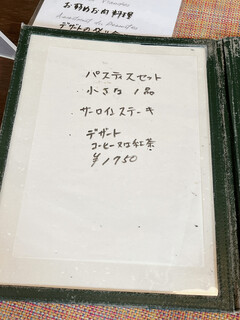 お勧めお肉料理
デザートの
パスティスセット
小さな 1品
サーロインステーキ
デザート
コーヒー又は紅茶
¥1750